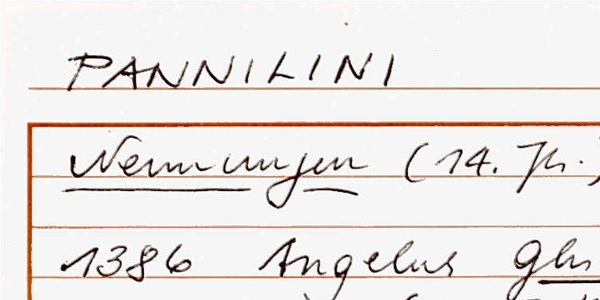 PANNILINI
Nennungen (14. Jh.)
1386 Angelus